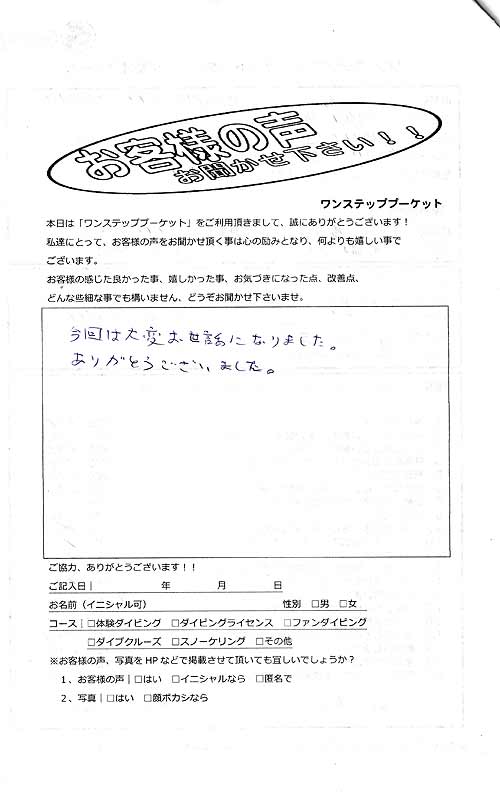 お客様の声
お聞かせ下さい！！
ワンステッププーケット
本日は「ワンステッププーケット」をご利用頂きまして、誠にありがとうございます！
私達にとって、お客様の声をお聞かせ頂く事は心の励みとなり、何よりも嬉しい事で
ございます。
お客様の感じた良かった事、嬉しかった事、お気づきになった点、改善点、
どんな些細な事でも構いません、どうぞお聞かせ下さいませ。
今回は大変お世話になりました。
ありがとうございました。
ご協力、ありがとうございます！！
ご記入日| 年 月 日
お名前（イニシャル可） 性別 □男 □女
コース|□体験ダイビング □ダイビングライセンス □ファンダイビング
□ダイブクルーズ □スノーケリング □その他
※お客様の声、写真をHPなどで掲載させて頂いても宜しいでしょうか？
１、お客様の声|□はい □イニシャルなら □匿名で
２、写真|□はい □顔ボカシなら